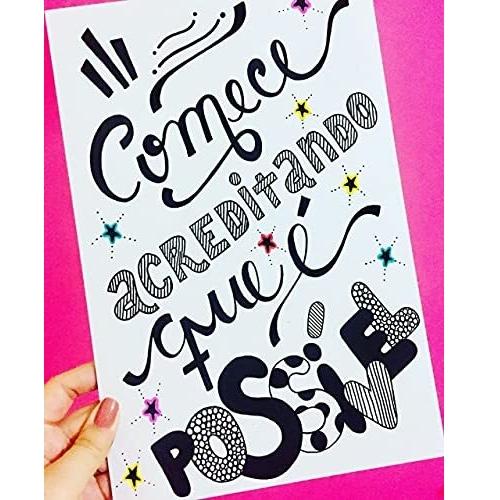 Comece
acREDitanDO
que é
PoSSíVEL